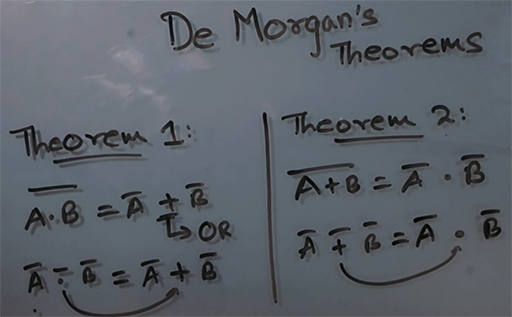 De Morgan's
Theorems
Theorem 1:
A̅·̅B̅ = A̅ + B̅
↳ OR
A̅ ·̅ B̅ = A̅ + B̅
Theorem 2:
A̅+̅B̅ = A̅ · B̅
A̅ +̅ B̅ = A̅ · B̅